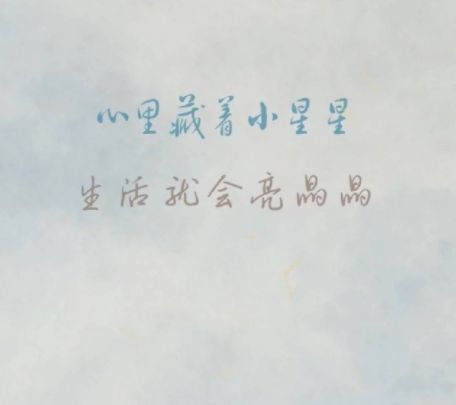 心里藏着小星星
生活就会亮晶晶